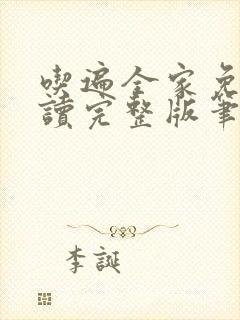 喫遍全家免
讀完整版筆
李誕